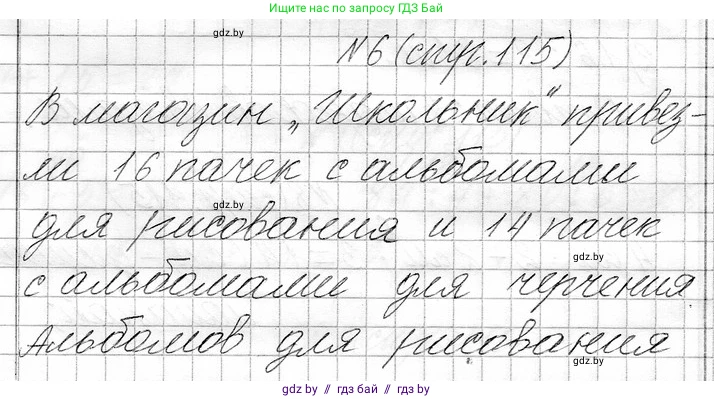 Ищите нас по запросу ГДЗ Бай
gdz.by
N6 (стр. 115)
В магазин „Школьник“ привез-
ли 16 пачек с альбомами
gdz.by
для рисования и 14 пачек
gdz.by
с альбомами для черчения
Альбомов для рисования
gdz.by
gdz.by // гдз бай // гдз by